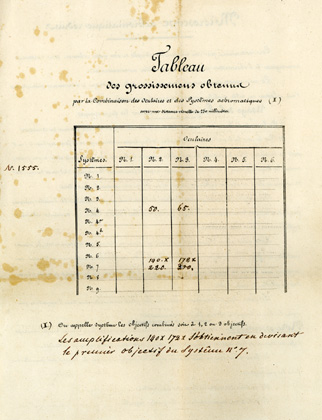 Tableau
des grossissemens obtenus
par la Combinaison des Oculaires et des Systèmes achromatiques (X)
avec une distance visuelle de millimètres
Oculaires
Systèmes. N. 1 N. 2. N. 3. N. 4. N. 5. N. 6.
No. 1555.
N. 1
N. 2
N. 3
N. 4 50. 65.
N. 4a
N. 4b
N. 5
N. 6 140.X 172x
N. 7 220. 270.
N. 8
N. 9
(X) On appelle Système les Objectifs combinés soit à 1, 2 ou 3 objectifs.
Les amplifications 140x 172x s'obtiennent en devisant
le premier objectif du Système No. 7.